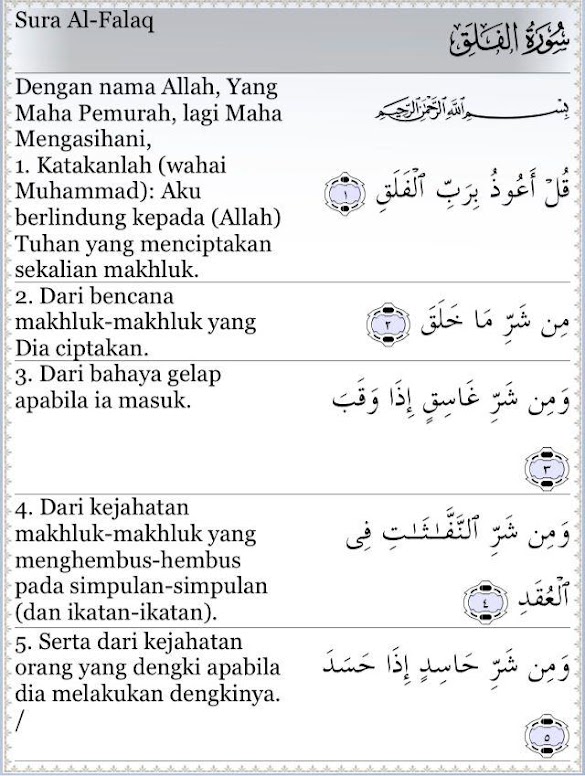 Sura Al-Falaq
سُورَةُ الفَلَق
Dengan nama Allah, Yang
Maha Pemurah, lagi Maha
Mengasihani,
بِسْمِ اللَّهِ الرَّحْمَٰنِ الرَّحِيمِ
1. Katakanlah (wahai
Muhammad): Aku
berlindung kepada (Allah)
Tuhan yang menciptakan
sekalian makhluk.
قُلْ أَعُوذُ بِرَبِّ ٱلْفَلَقِ ١
2. Dari bencana
makhluk-makhluk yang
Dia ciptakan.
مِن شَرِّ مَا خَلَقَ ٢
3. Dari bahaya gelap
apabila ia masuk.
وَمِن شَرِّ غَاسِقٍ إِذَا وَقَبَ
٣
4. Dari kejahatan
makhluk-makhluk yang
menghembus-hembus
pada simpulan-simpulan
(dan ikatan-ikatan).
وَمِن شَرِّ ٱلنَّفَّـٰثَـٰتِ فِى
ٱلْعُقَدِ ٤
5. Serta dari kejahatan
orang yang dengki apabila
dia melakukan dengkinya.
/
وَمِن شَرِّ حَاسِدٍ إِذَا حَسَدَ
٥